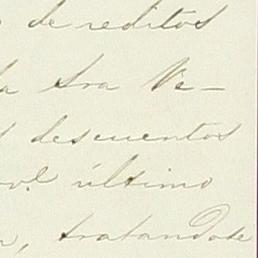 de reditos
la Sra Ve-
descuentos
último
, tratandose